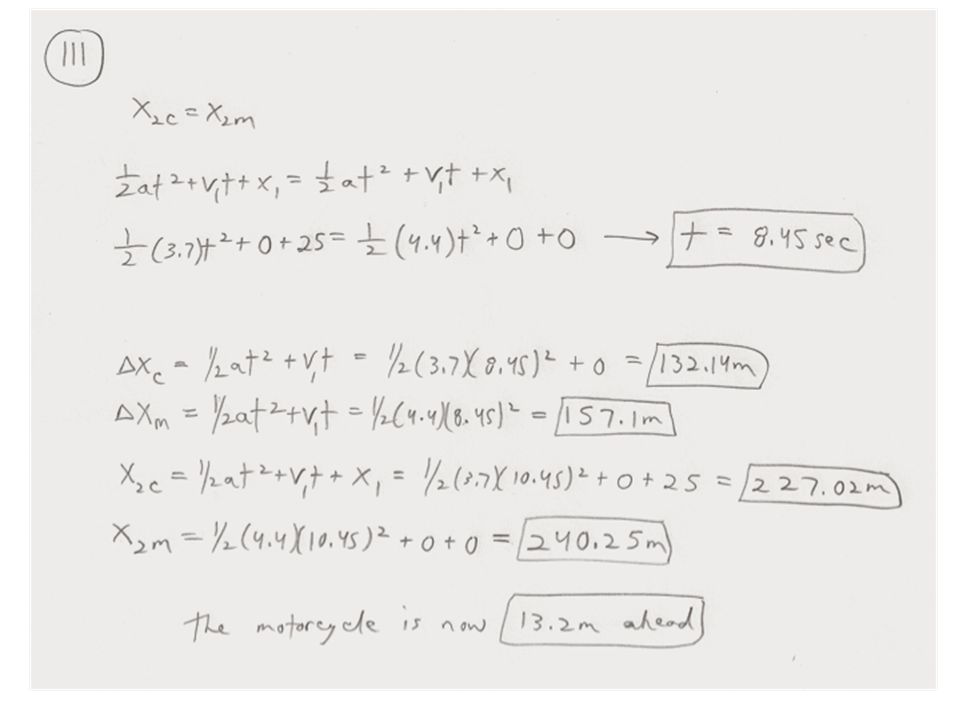 111
X₂c = X₂m
½at²+v₁t+x₁ = ½at²+v₁t+x₁
½(3.7)t²+0+25 = ½(4.4)t²+0+0 → t = 8.45 sec
ΔXc = ½at²+v₁t = ½(3.7)(8.45)²+0 = 132.14m
ΔXm = ½at²+v₁t = ½(4.4)(8.45)² = 157.1m
X₂c = ½at²+v₁t+x₁ = ½(3.7)(10.45)²+0+25 = 227.02m
X₂m = ½(4.4)(10.45)²+0+0 = 240.25m
the motorcycle is now 13.2m ahead